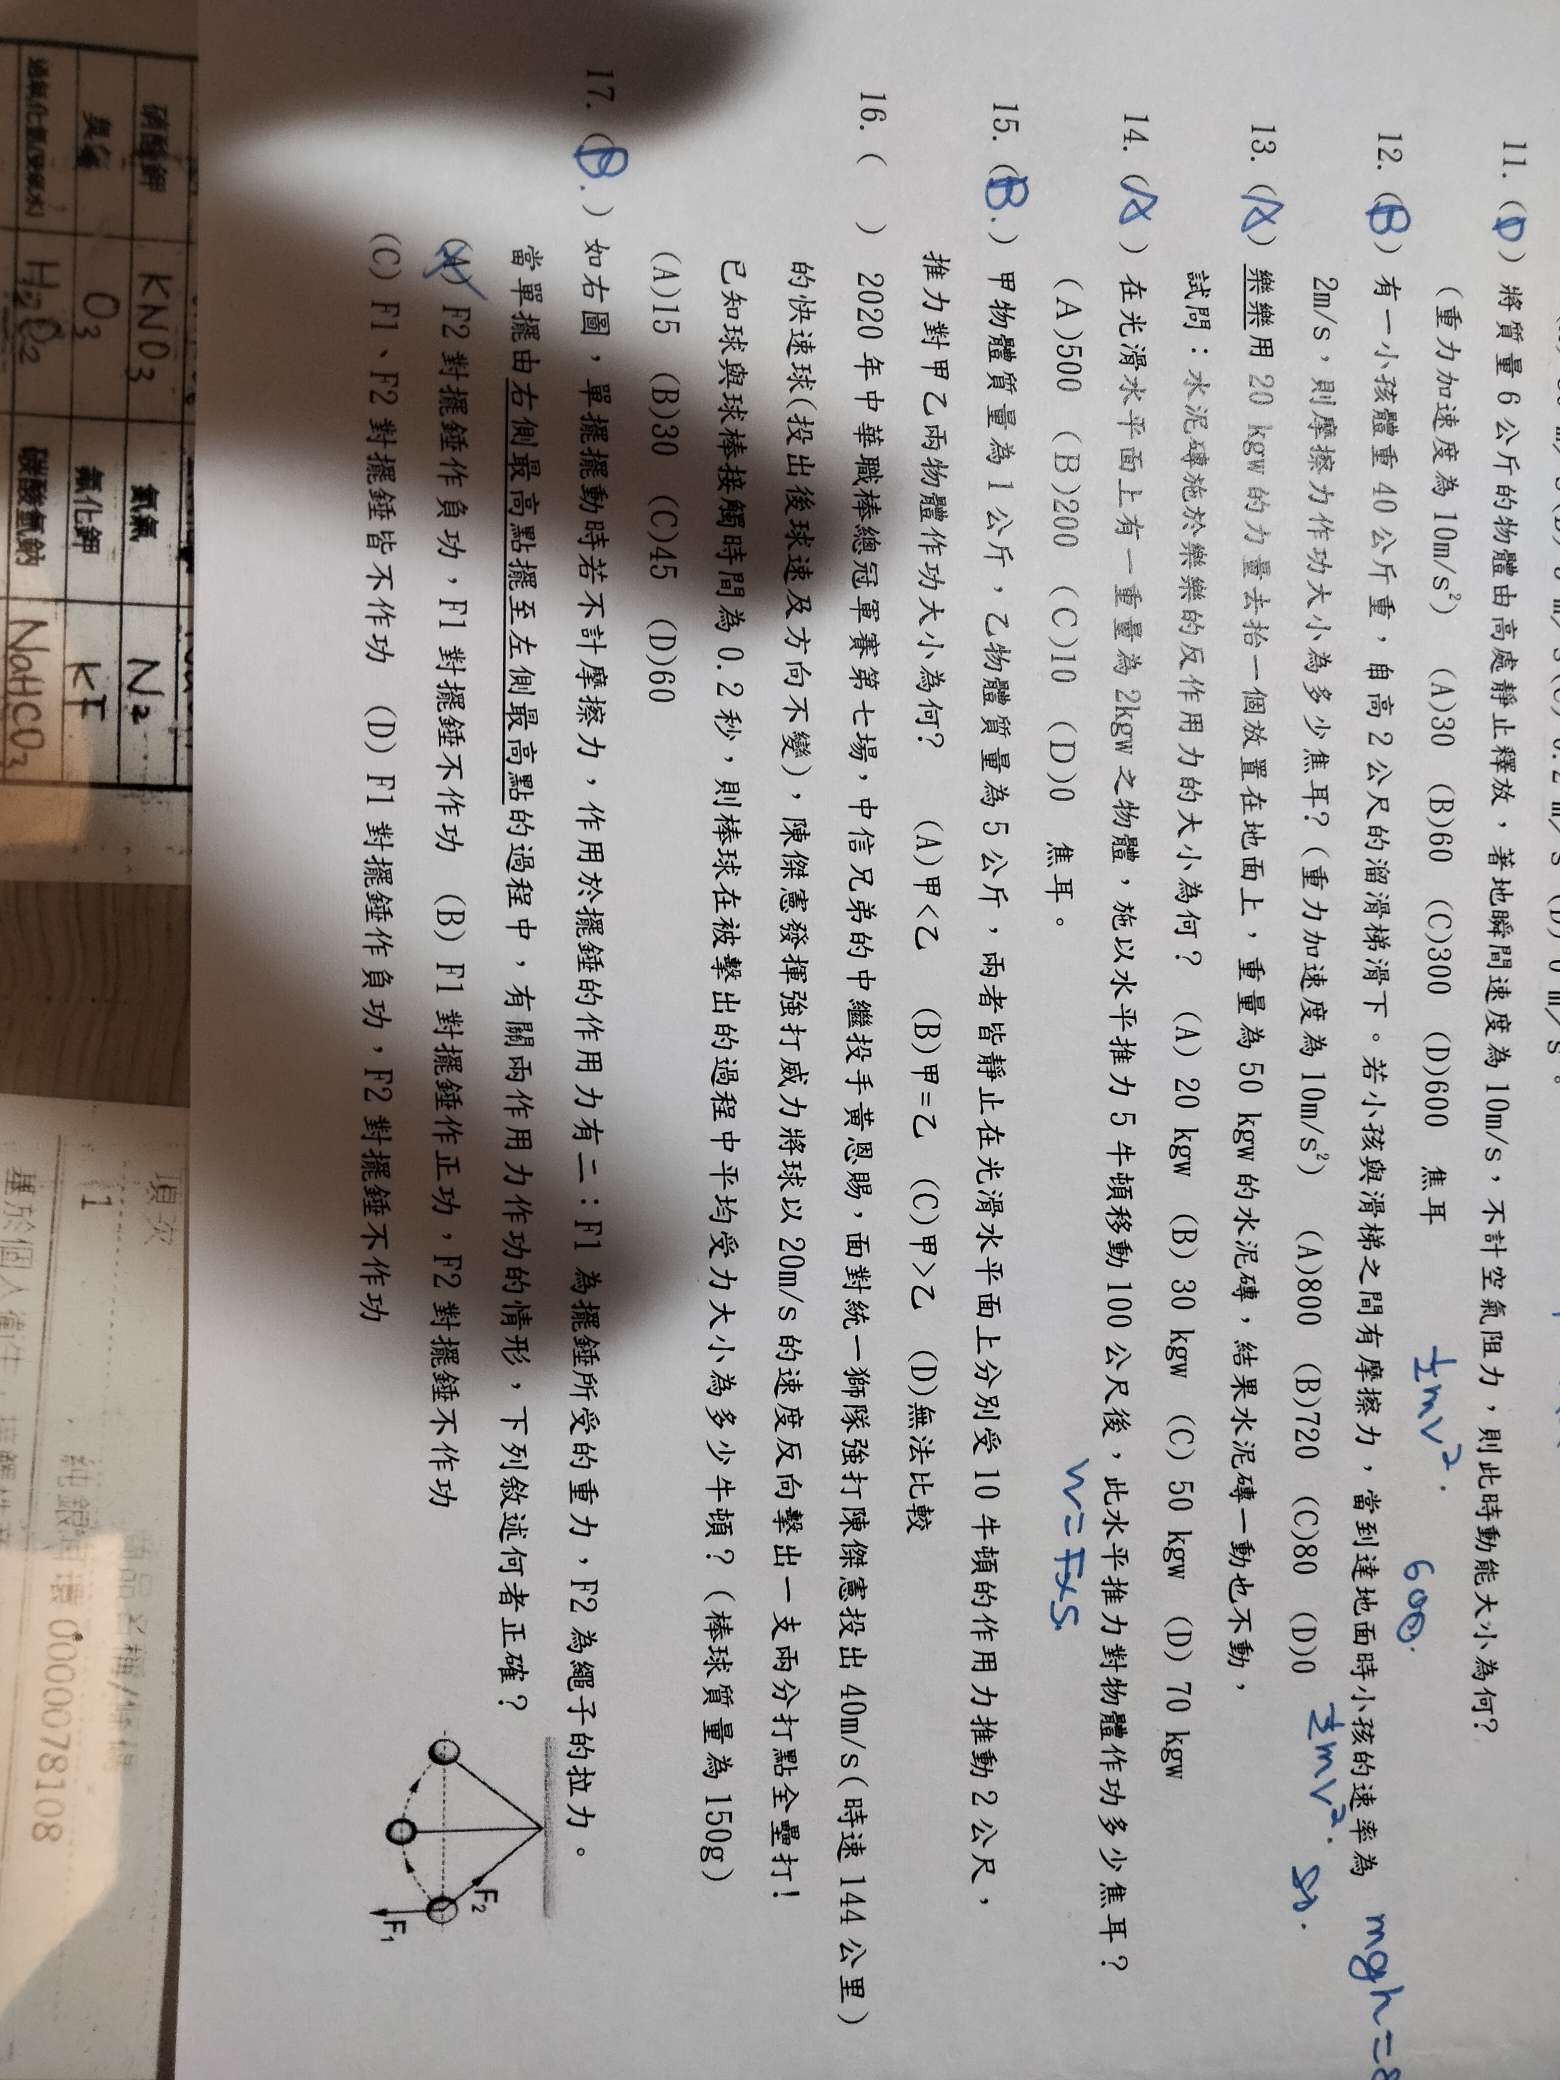 11. (D) 將質量 6 公斤的物體由高處靜止釋放，著地瞬間速度為 10m/s，不計空氣阻力，則此時動能大小為何?
(重力加速度為 10m/s²) (A)30 (B)60 (C)300 (D)600 焦耳
½mv². 600.
12. (B) 有一小孩體重 40 公斤重，自高 2 公尺的溜滑梯滑下。若小孩與滑梯之間有摩擦力，當到達地面時小孩的速率為
mgh=8
2m/s，則摩擦力作功大小為多少焦耳? (重力加速度為 10m/s²) (A)800 (B)720 (C)80 (D)0
½mv². 80.
13. (A) 樂樂用 20 kgw 的力量去抬一個放置在地面上，重量為 50 kgw 的水泥磚，結果水泥磚一動也不動，
試問：水泥磚施於樂樂的反作用力的大小為何？ (A) 20 kgw (B) 30 kgw (C) 50 kgw (D) 70 kgw
14. (A) 在光滑水平面上有一重量為 2kgw 之物體，施以水平推力 5 牛頓移動 100 公尺後，此水平推力對物體作功多少焦耳？
(A)500 (B)200 (C)10 (D)0 焦耳。
W=F×S
15. (B.) 甲物體質量為 1 公斤，乙物體質量為 5 公斤，兩者皆靜止在光滑水平面上分別受 10 牛頓的作用力推動 2 公尺，
推力對甲乙兩物體作功大小為何? (A)甲<乙 (B)甲=乙 (C)甲>乙 (D)無法比較
16. ( ) 2020 年中華職棒總冠軍賽第七場，中信兄弟的中繼投手黃恩賜，面對統一獅隊強打陳傑憲投出 40m/s(時速 144 公里)
的快速球(投出後球速及方向不變)，陳傑憲發揮強打威力將球以 20m/s 的速度反向擊出一支兩分打點全壘打!
已知球與球棒接觸時間為 0.2 秒，則棒球在被擊出的過程中平均受力大小為多少牛頓？(棒球質量為 150g)
(A)15 (B)30 (C)45 (D)60
17. (B.) 如右圖，單擺擺動時若不計摩擦力，作用於擺錘的作用力有二：F1 為擺錘所受的重力，F2 為繩子的拉力。
當單擺由右側最高點擺至左側最高點的過程中，有關兩作用力作功的情形，下列敘述何者正確？
(A) F2 對擺錘作負功，F1 對擺錘不作功 (B) F1 對擺錘作正功，F2 對擺錘不作功
(C) F1、F2 對擺錘皆不作功 (D) F1 對擺錘作負功，F2 對擺錘不作功
F₂
F₁
硝酸鉀 KNO₃ 氮氣 N₂
臭氧 O₃ 氟化鉀 KF
過氧化氫(雙氧水) H₂O₂ 碳酸氫鈉 NaHCO₃
項次
1
0000078108